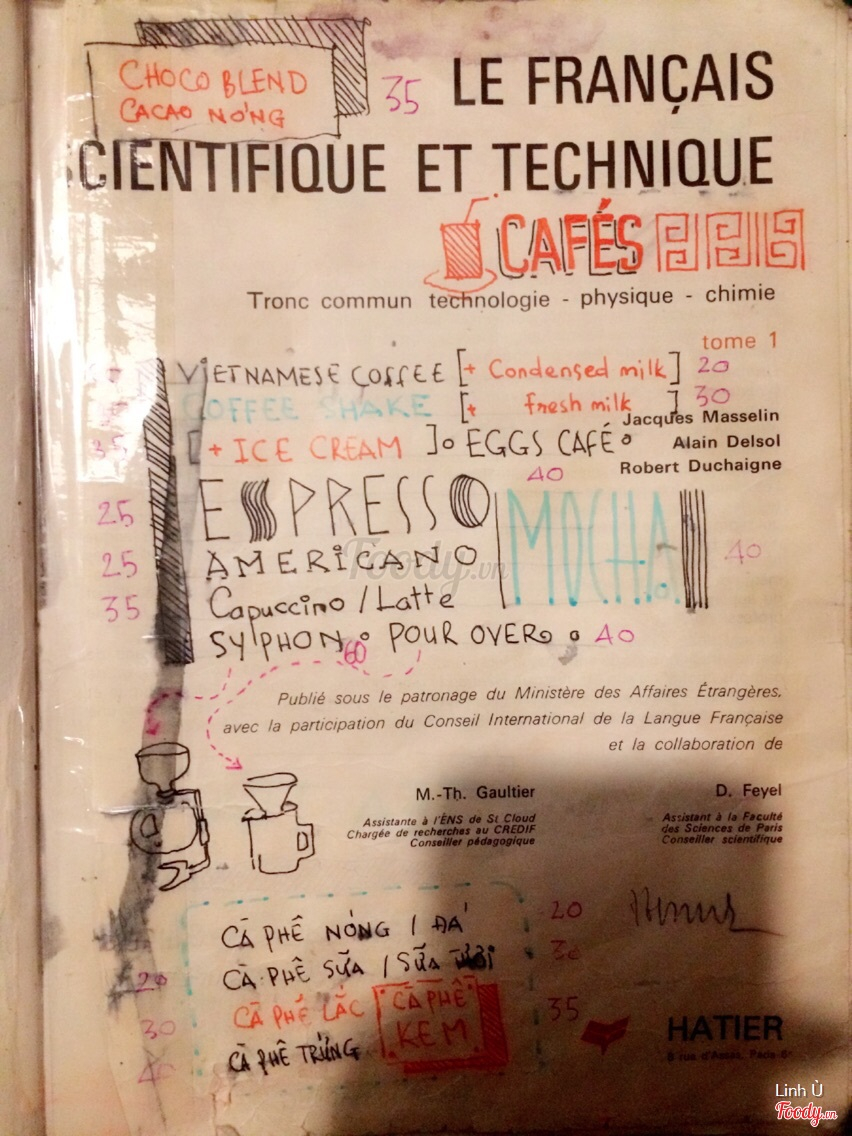 CHOCO BLEND
CACAO NÓNG
35
LE FRANÇAIS
SCIENTIFIQUE ET TECHNIQUE
CAFÉS
Tronc commun technologie - physique - chimie
tome 1
VIETNAMESE COFFEE [+ Condensed milk] 20
COFFEE SHAKE [+ fresh milk] 30
Jacques Masselin
35 [+ ICE CREAM] EGGS CAFÉ
Alain Delsol
Robert Duchaigne
40
25 ESPRESSO
MOCHA 40
25 AMERICANO
35 Capuccino / Latte
SYLPHON 60 POUR OVER 40
Foody.vn
Publié sous le patronage du Ministère des Affaires Étrangères,
avec la participation du Conseil International de la Langue Française
et la collaboration de
M.-Th. Gaultier
Assistante à l'ÉNS de St Cloud
Chargée de recherches au CREDIF
Conseiller pédagogique
D. Feyel
Assistant à la Faculté
des Sciences de Paris
Conseiller scientifique
CÀ PHÊ NÓNG / ĐÁ 20
20 CÀ PHÊ SỮA / SỮA TƯƠI 30
30 CÀ PHÊ LẮC
CÀ PHÊ
KEM
35
40 CÀ PHÊ TRỨNG
HATIER
8 rue d'Assas, Paris-6e
Linh Ủ
Foody.vn